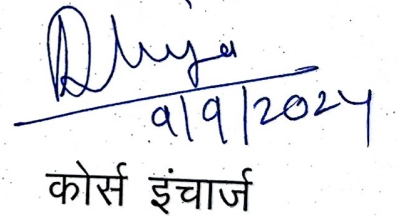 9/9/2024
कोर्स इंचार्ज